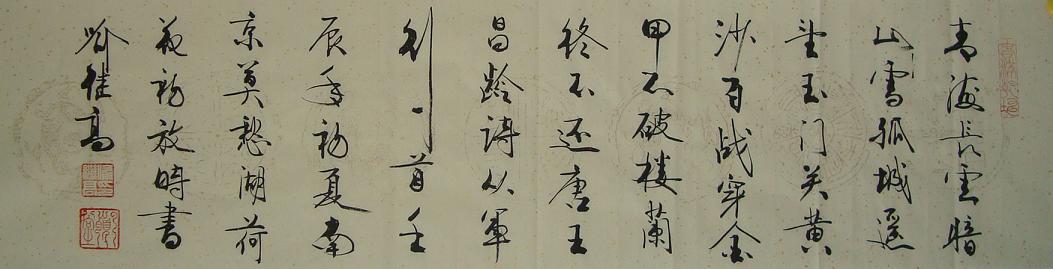 青海長雲暗
山雪孤城遥
望玉门关黄
沙百战穿金
甲不破楼蘭
终不还唐王
昌齡詩从軍
行一首壬
辰年初夏南
京莫愁湖荷
花初放時書
喻继高